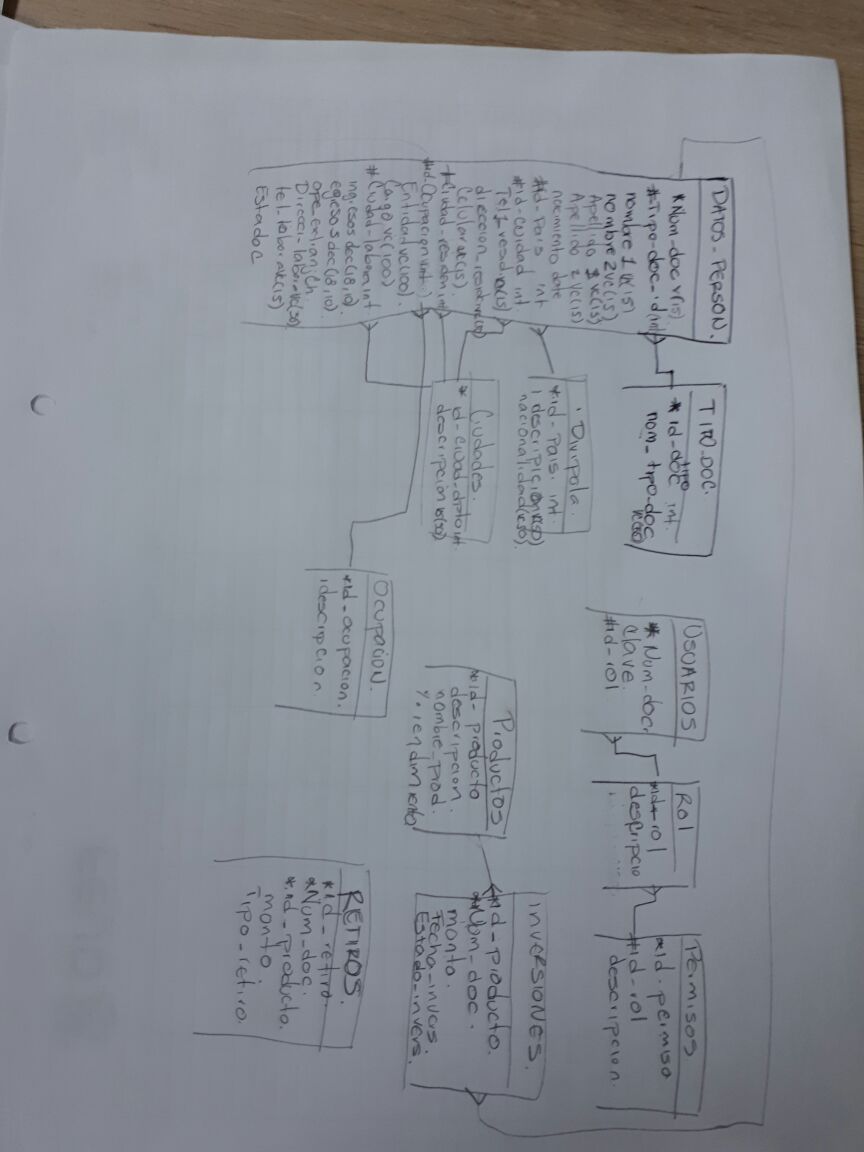 DATOS_PERSON.
*Num_doc v(15)
#Tipo-doc-id(int)
nombre 1 vc(15)
nombre 2 vc(15)
Apellido 1 vc(15)
Apellido 2 vc(15)
nacimiento date
#id-Pais int
#id-ciudad int
Tel_resd vc(15)
direccion
Celular vc(15).
#Ciudad-residen int
#id-Ocupacion int
Entidad vc(100)
Cargo vc(100)
#Ciudad-labora int
ingresos dec(18,10)
egresos dec(18,10)
ope_extranj Ch.
Direcci-labor-vc(50)
tel-labor vc(15)
Estado C
TIPO_DOC.
*id-tipo doc int.
nom_tipo-doc
vc(50)
Divipola.
*id-Pais. int.
descripcion vc(50)
nacionalidad vc(50).
Ciudades.
* id-ciudad-dpto int
descripcion vc(50)
Ocupacion.
*id-ocupacion.
descripcion.
USUARIOS
*Num-doc
clave.
#id-rol
ROl
*id-rol
descripcio
Permisos
*id-permiso
#id-rol
descripcion.
Productos
*id-producto
descripcion.
nombre_prod.
%rendimiento
inversiones.
*id-producto.
*Num_doc.
monto.
Fecha-invers.
Estado-invers.
RETIROS.
*id_retiro.
*Num_doc.
*id-producto.
monto.
Tipo-retiro.